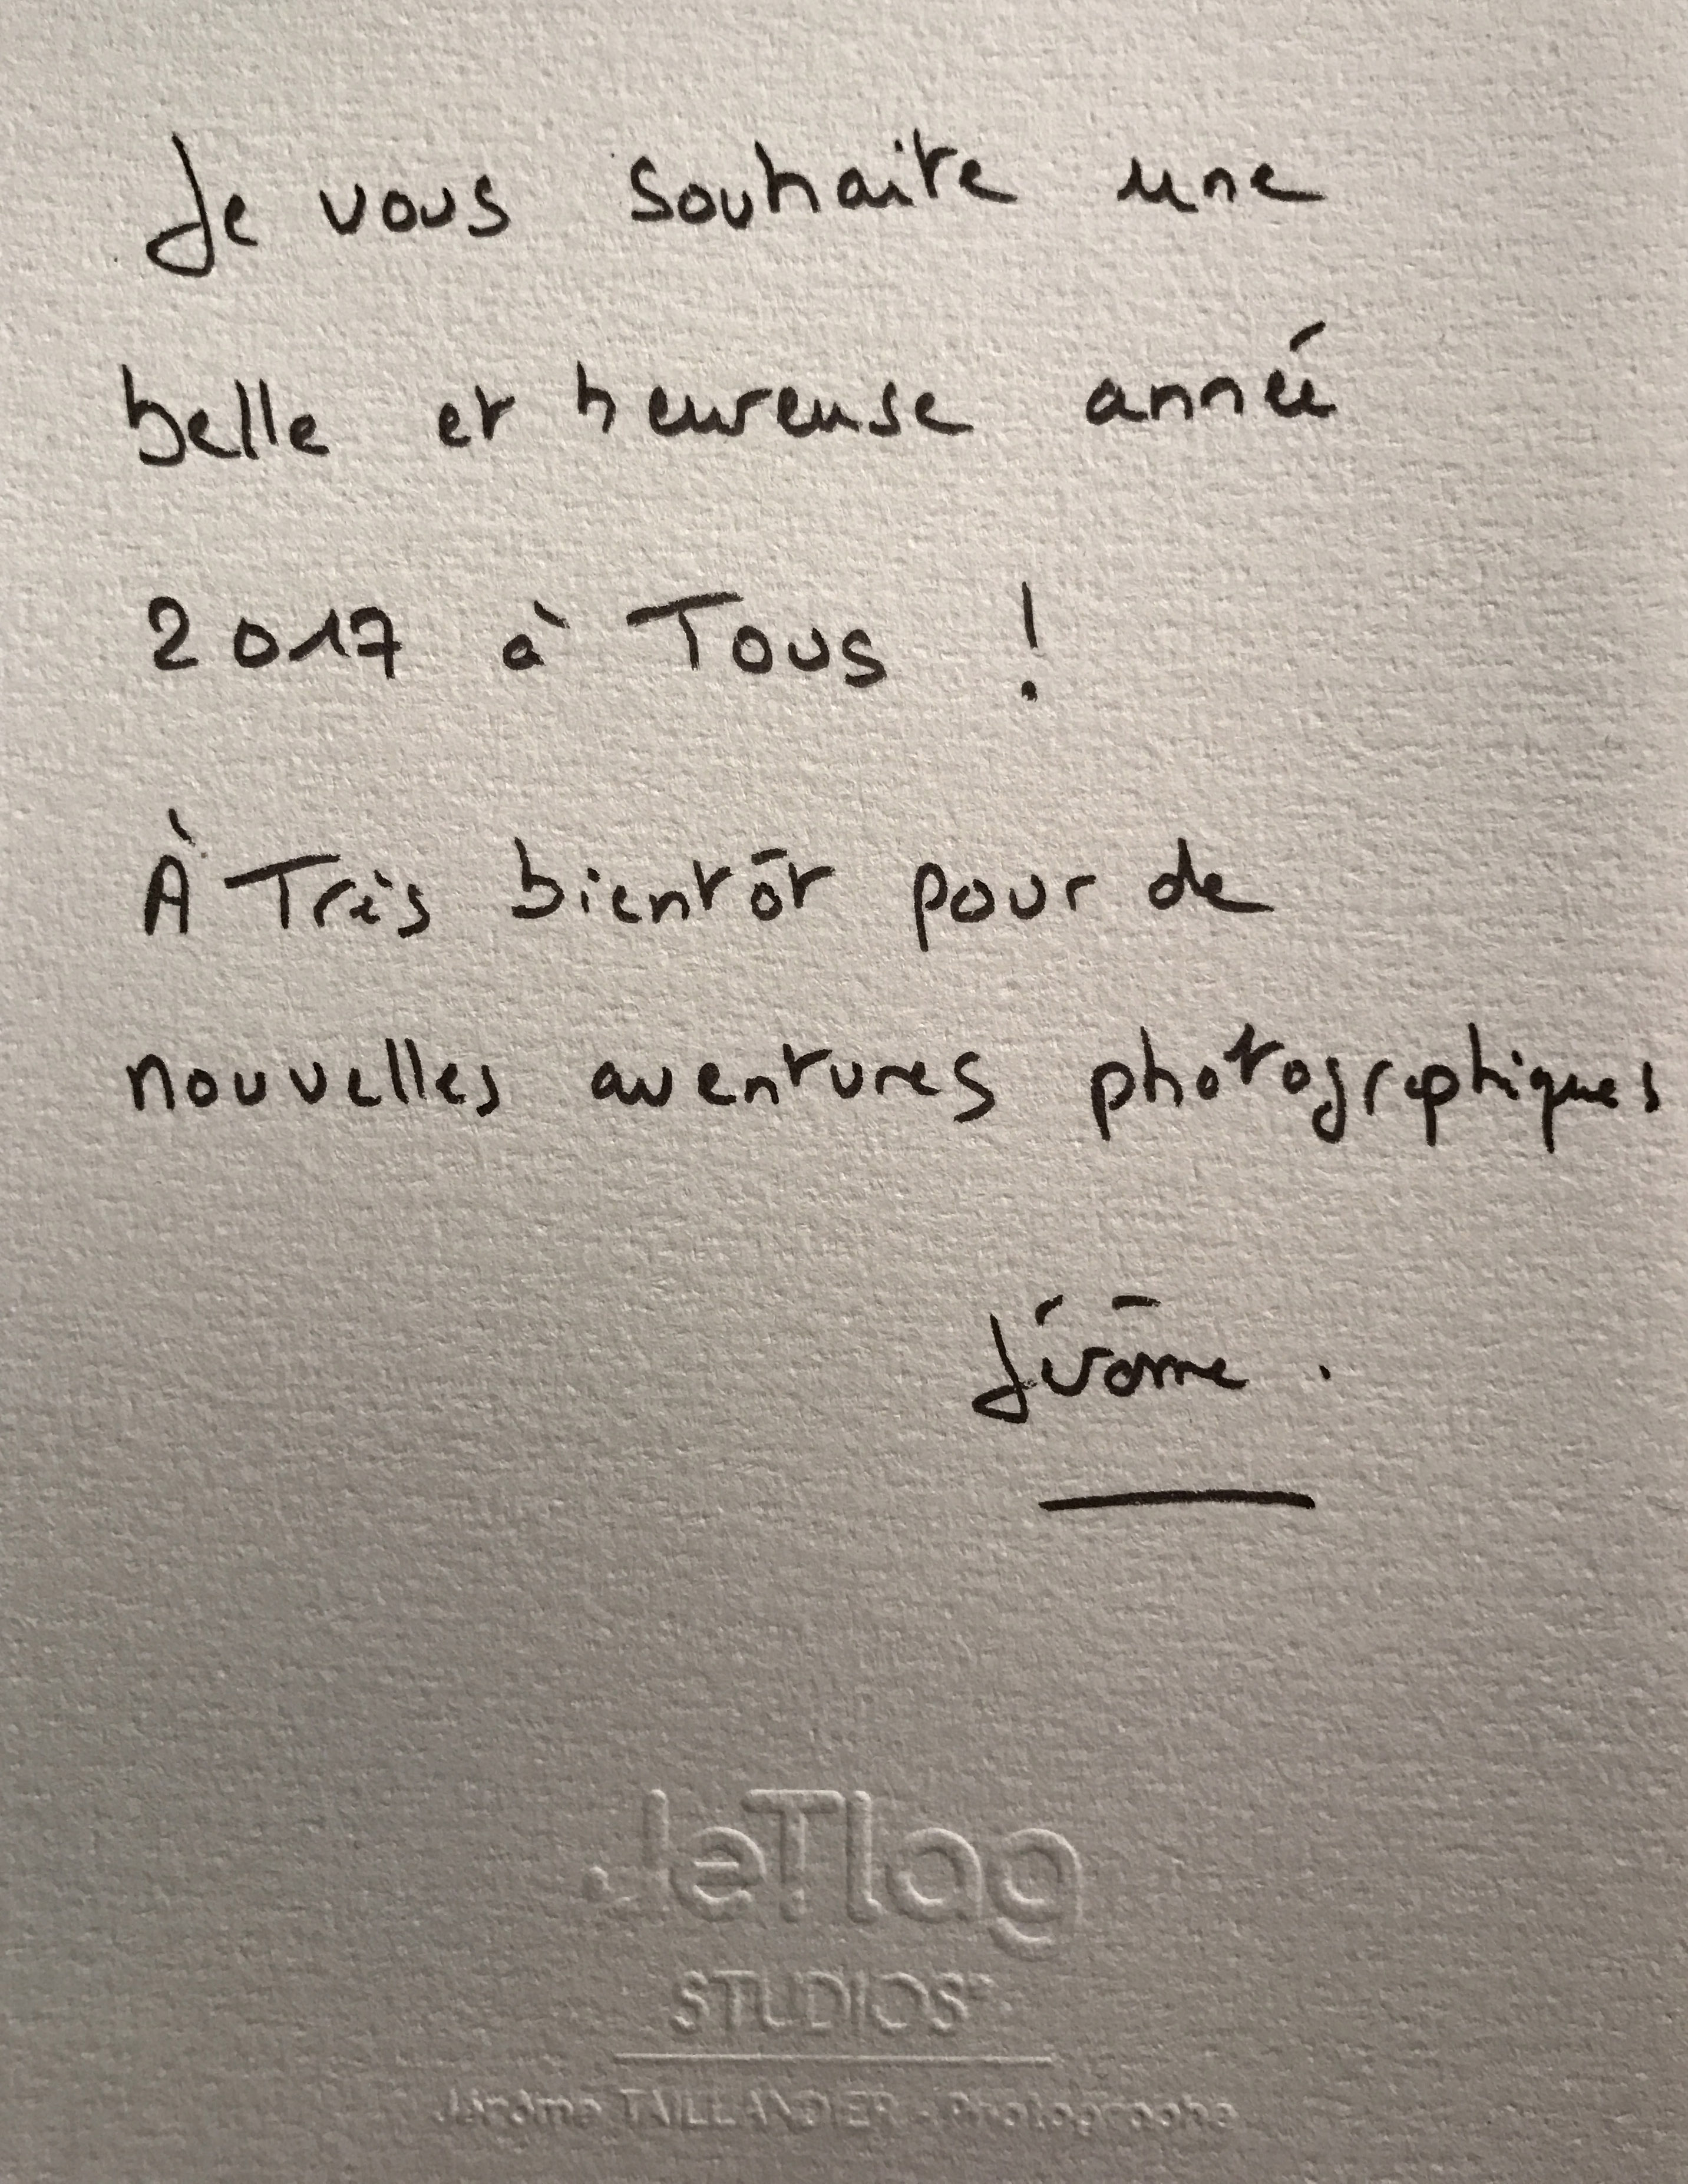 Je vous souhaite une
belle et heureuse année
2017 à Tous !
À Très bientôt pour de
nouvelles aventures photographiques
Jérôme .
JeTlag
STUDIOS
Jérôme TAILLANDIER - Photographe